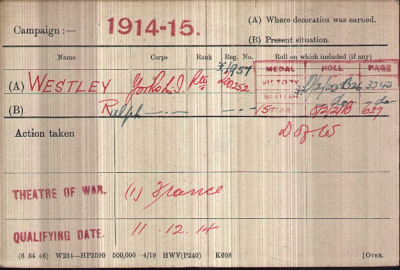 Campaign :— 1914-15. (A) Where decoration was earned.
(B) Present situation.
Name Corps Rank Reg. No. Roll on which included (if any)
MEDAL ROLL PAGE
(A) WESTLEY York L.I. Pte 1957
VICTORY
(B) Ralph —·— —·—
15 Star 627
Action taken D of W
THEATRE OF WAR. (1) France
QUALIFYING DATE. 11. 12. 14
(6 34 46) W234—HP5590 500,000 4/19 HWV(P240) K608 [Over.